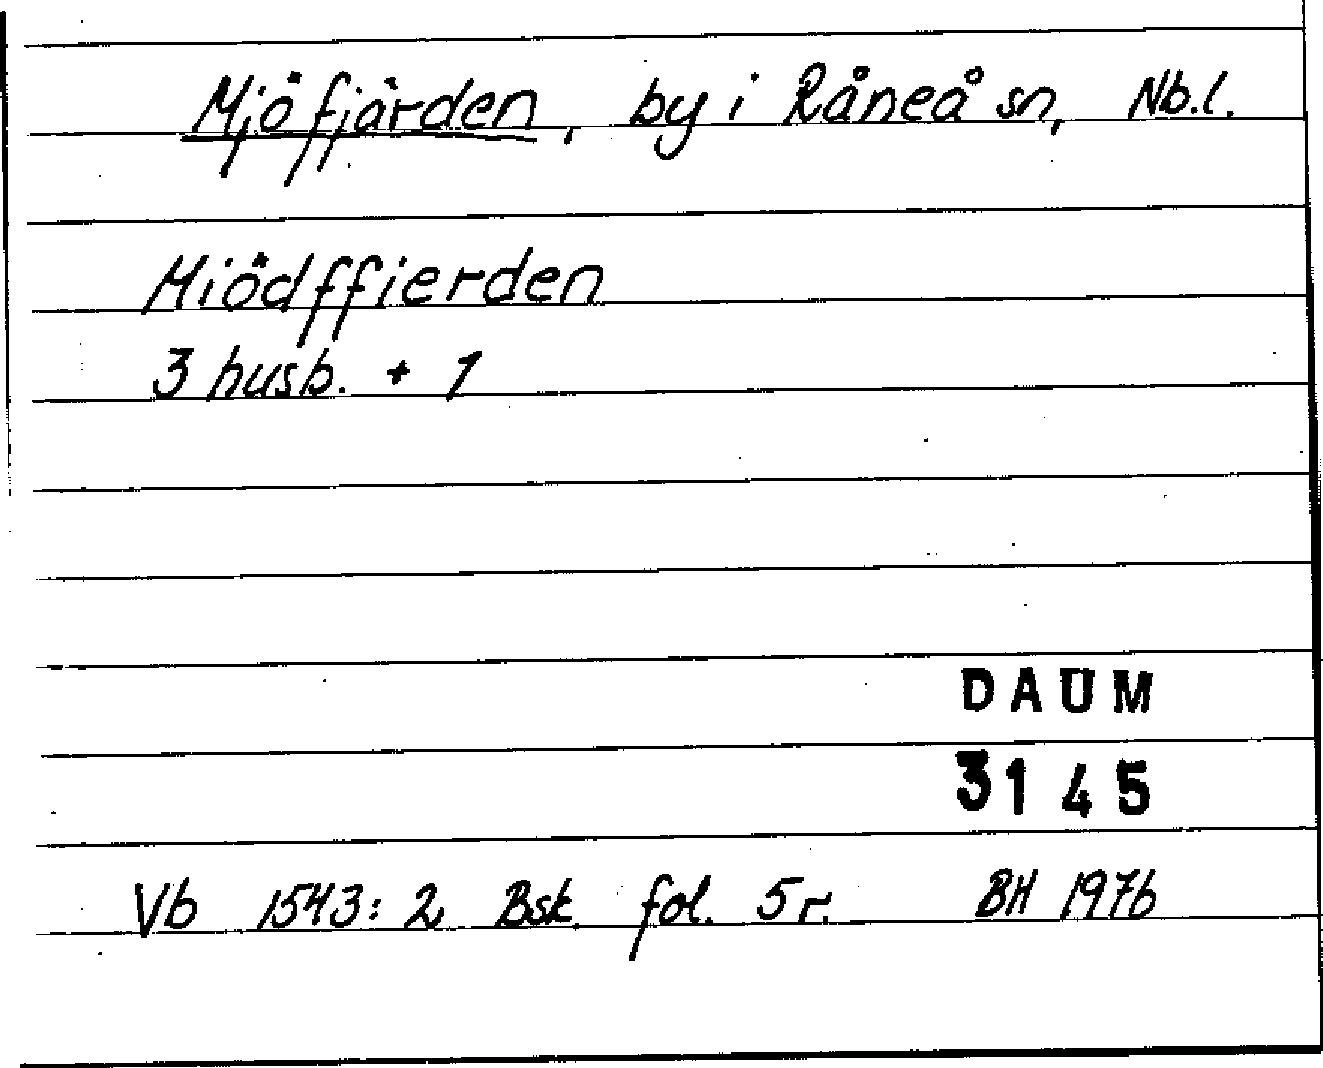 Mjöfjärden, by i Råneå sn, Nb.l.
Miödffierden
3 husb. + 1
DAUM
3145
Vb 1543:2 Bsk fol. 5r. BH 1976